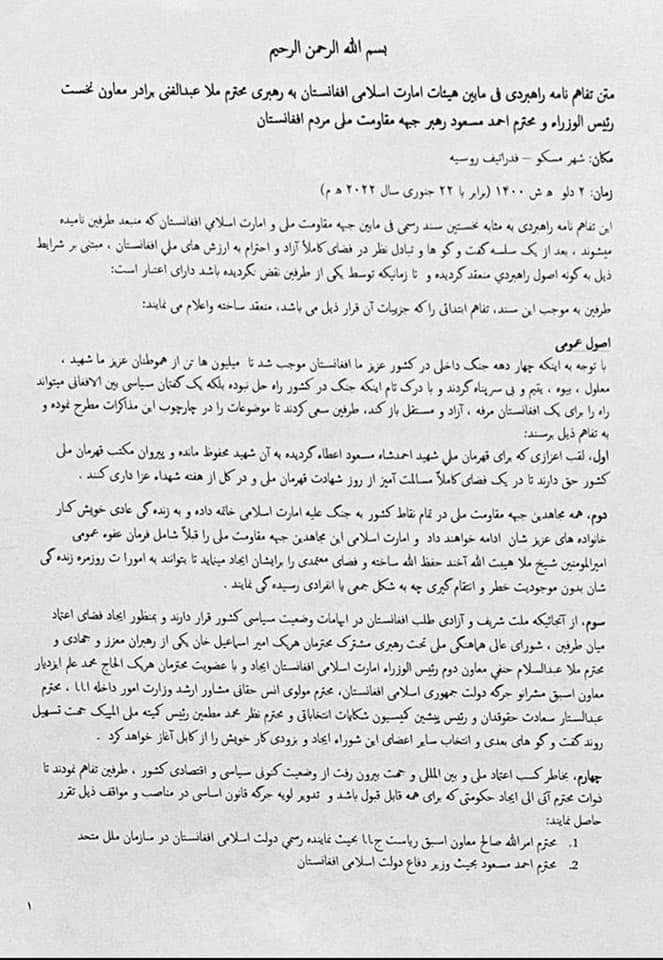 بسم الله الرحمن الرحيم
متن تفاهم نامه راهبردی فی مابین هیئات امارت اسلامی افغانستان به رهبری محترم ملا عبدالغنی برادر معاون نخست
رئیس الوزراء و محترم احمد مسعود رهبر جبهه مقاومت ملی مردم افغانستان
مکان: شهر مسکو – فدراتیف روسیه
زمان: ۲ دلو ه ش ۱۴۰۰ (برابر با ۲۲ جنوری سال ۲۰۲۲ ه م)
این تفاهم نامه راهبردی به مثابه نخستین سند رسمی فی مابین جبهه مقاومت ملی و امارت اسلامي افغانستان که منبعد طرفین نامیده
میشوند ، بعد از یک سلسه گفت و گو ها و تبادل نظر در فضای کاملأ آزاد و احترام به ارزش های ملي افغانستان ، مبتنی بر شرایط
ذیل به گونه اصول راهبردي منعقد گردیده و تا زمانیکه توسط یکی از طرفین نقض نگردیده باشد دارای اعتبار است:
طرفین به موجب این سند، تفاهم ابتدائی را که جزییات آن قرار ذیل می باشد، منعقد ساخته واعلام می نمایند:
اصول عمومی
با توجه به اینکه چهار دهه جنگ داخلی در کشور عزیز ما افغانستان موجب شد تا میلیون ها تن از هموطنان عزیز ما شهید ،
معلول ، بیوه ، یتیم و بی سرپناه گردند و با درک تام اینکه جنگ در کشور راه حل نبوده بلکه یک گفتمان سیاسی بین الافغانی میتواند
راه را برای یک افغانستان مرفه ، آزاد و مستقل باز کند، طرفین سعی کردند تا موضوعات را در چارچوب این مذاکرات مطرح نموده و
به تفاهم ذیل برسند:
اول، لقب اعزازی که برای قهرمان ملي شهید احمدشاه مسعود اعطاء گردیده به آن شهید محفوظ مانده و پیروان مکتب قهرمان ملی
کشور حق دارند تا در یک فضای کاملاً مسالمت آمیز از روز شهادت قهرمان ملی و در کل از هفته شهداء عزا داری کنند .
دوم، همه مجاهدین جبهه مقاومت ملی در تمام نقاط کشور به جنگ علیه امارت اسلامی خاتمه داده و به زنده گی عادی خویش کنار
خانواده های عزیز شان ادامه خواهند داد و امارت اسلامی این مجاهدین جبهه مقاومت ملی را قبلاً شامل فرمان عفوه عمومی
امیرالمومنین شیخ ملا هیبت الله آخند حفظ الله ساخته و فضای معتمدی را برایشان ایجاد مینماید تا بتوانند به امورات روزمره زنده گی
شان بدون موجودیت خطر و انتقام گیری چه به شکل جمعی یا انفرادی رسیده گی نمایند .
سوم، از آنجائیکه ملت شریف و آزادی طلب افغانستان در ابهامات وضعیت سیاسی کشور قرار دارند و بمنظور ایجاد فضای اعتماد
میان طرفین ، شورای عالی هماهنگی ملی تحت رهبری مشترک محترمان هریک امیر اسماعیل خان یکی از رهبران معزز و جهادی و
محترم ملا عبدالسلام حنفي معاون دوم رئیس الوزراء امارت اسلامی افغانستان ایجاد و با عضویت محترمان هریک الحاج محمد علم ایزدیار
معاون اسبق مشرانو جرگه دولت جمهوری اسلامی افغانستان، محترم مولوی انس حقانی مشاور ارشد وزارت امور داخله ااا ، محترم
عبدالستار سعادت حقوقدان و رئیس پیشین کمیسیون شکایات انتخاباتی و محترم نظر محمد مطمین رئیس کمیته ملی المپیک جهت تسهیل
روند گفت و گو های بعدی و انتخاب سایر اعضای این شوراء ایجاد و بزودی کار خویش را از کابل آغاز خواهد کرد .
چهارم، بخاطر کسب اعتماد ملی و بین المللی و جهت بیرون رفت از وضعیت کنونی سیاسی و اقتصادی کشور ، طرفین تفاهم نمودند تا
ذوات محترم آتی الی ایجاد حکومتی که برای همه قابل قبول باشد و تدویر لویه جرگه قانون اساسی در مناصب و مواقف ذیل تقرر
حاصل نمایند:
1. محترم امرالله صالح معاون اسبق ریاست ج‌اا بحیث نماینده رسمي دولت اسلامی افغانستان در سازمان ملل متحد
2. محترم احمد مسعود بحیث وزیر دفاع دولت اسلامی افغانستان
۱